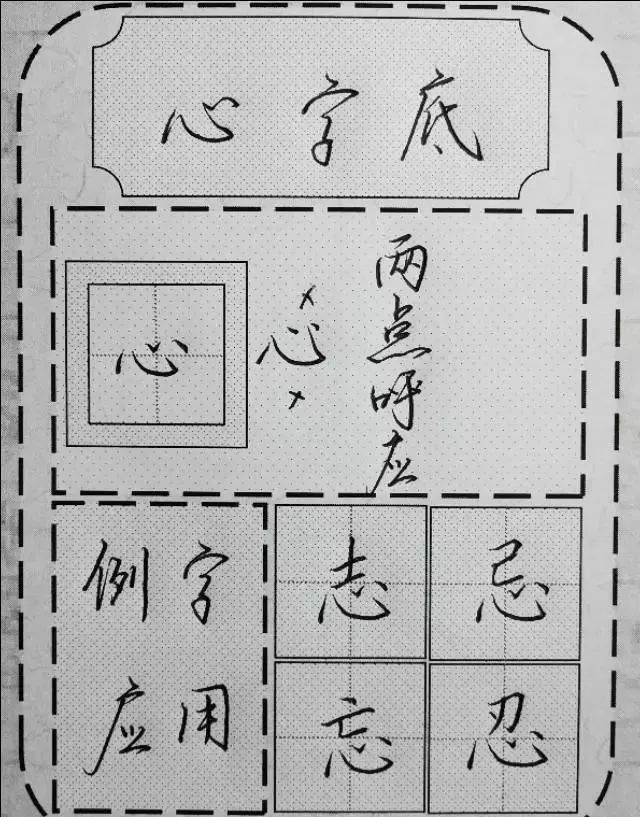 心字底
心
心
两点呼应
例字
应用
志
忌
忘
忍